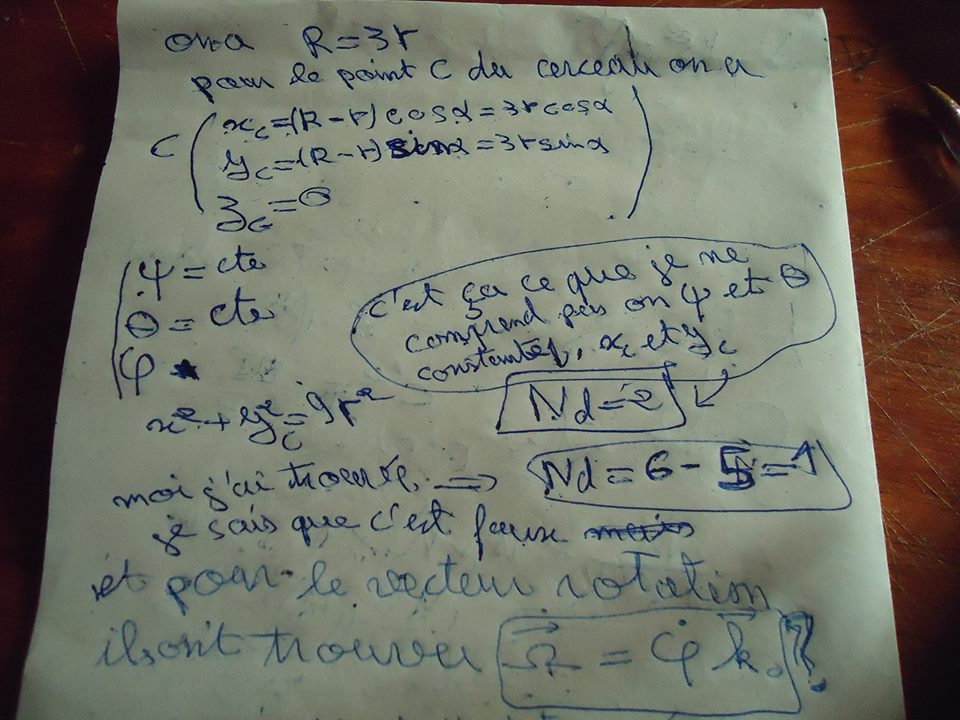 on a R = 3r
pour le point C du cerceau on a
C ( x_c = (R - r) cos α = 3r cos α
y_c = (R - r) sin α = 3r sin α
z_c = 0 )
ψ = cte
θ = cte
φ
c'est ça ce que je ne
comprend pas on ψ et θ
constantes, x_c et y_c
x² + y_c² = 9r²
Nd = 2
moi j'ai trouvé ⟹ Nd = 6 - 5 = 1
je sais que c'est faux mais
et pour le vecteur rotation
ils ont trouver Ω⃗ = φ̇ k⃗ . ?